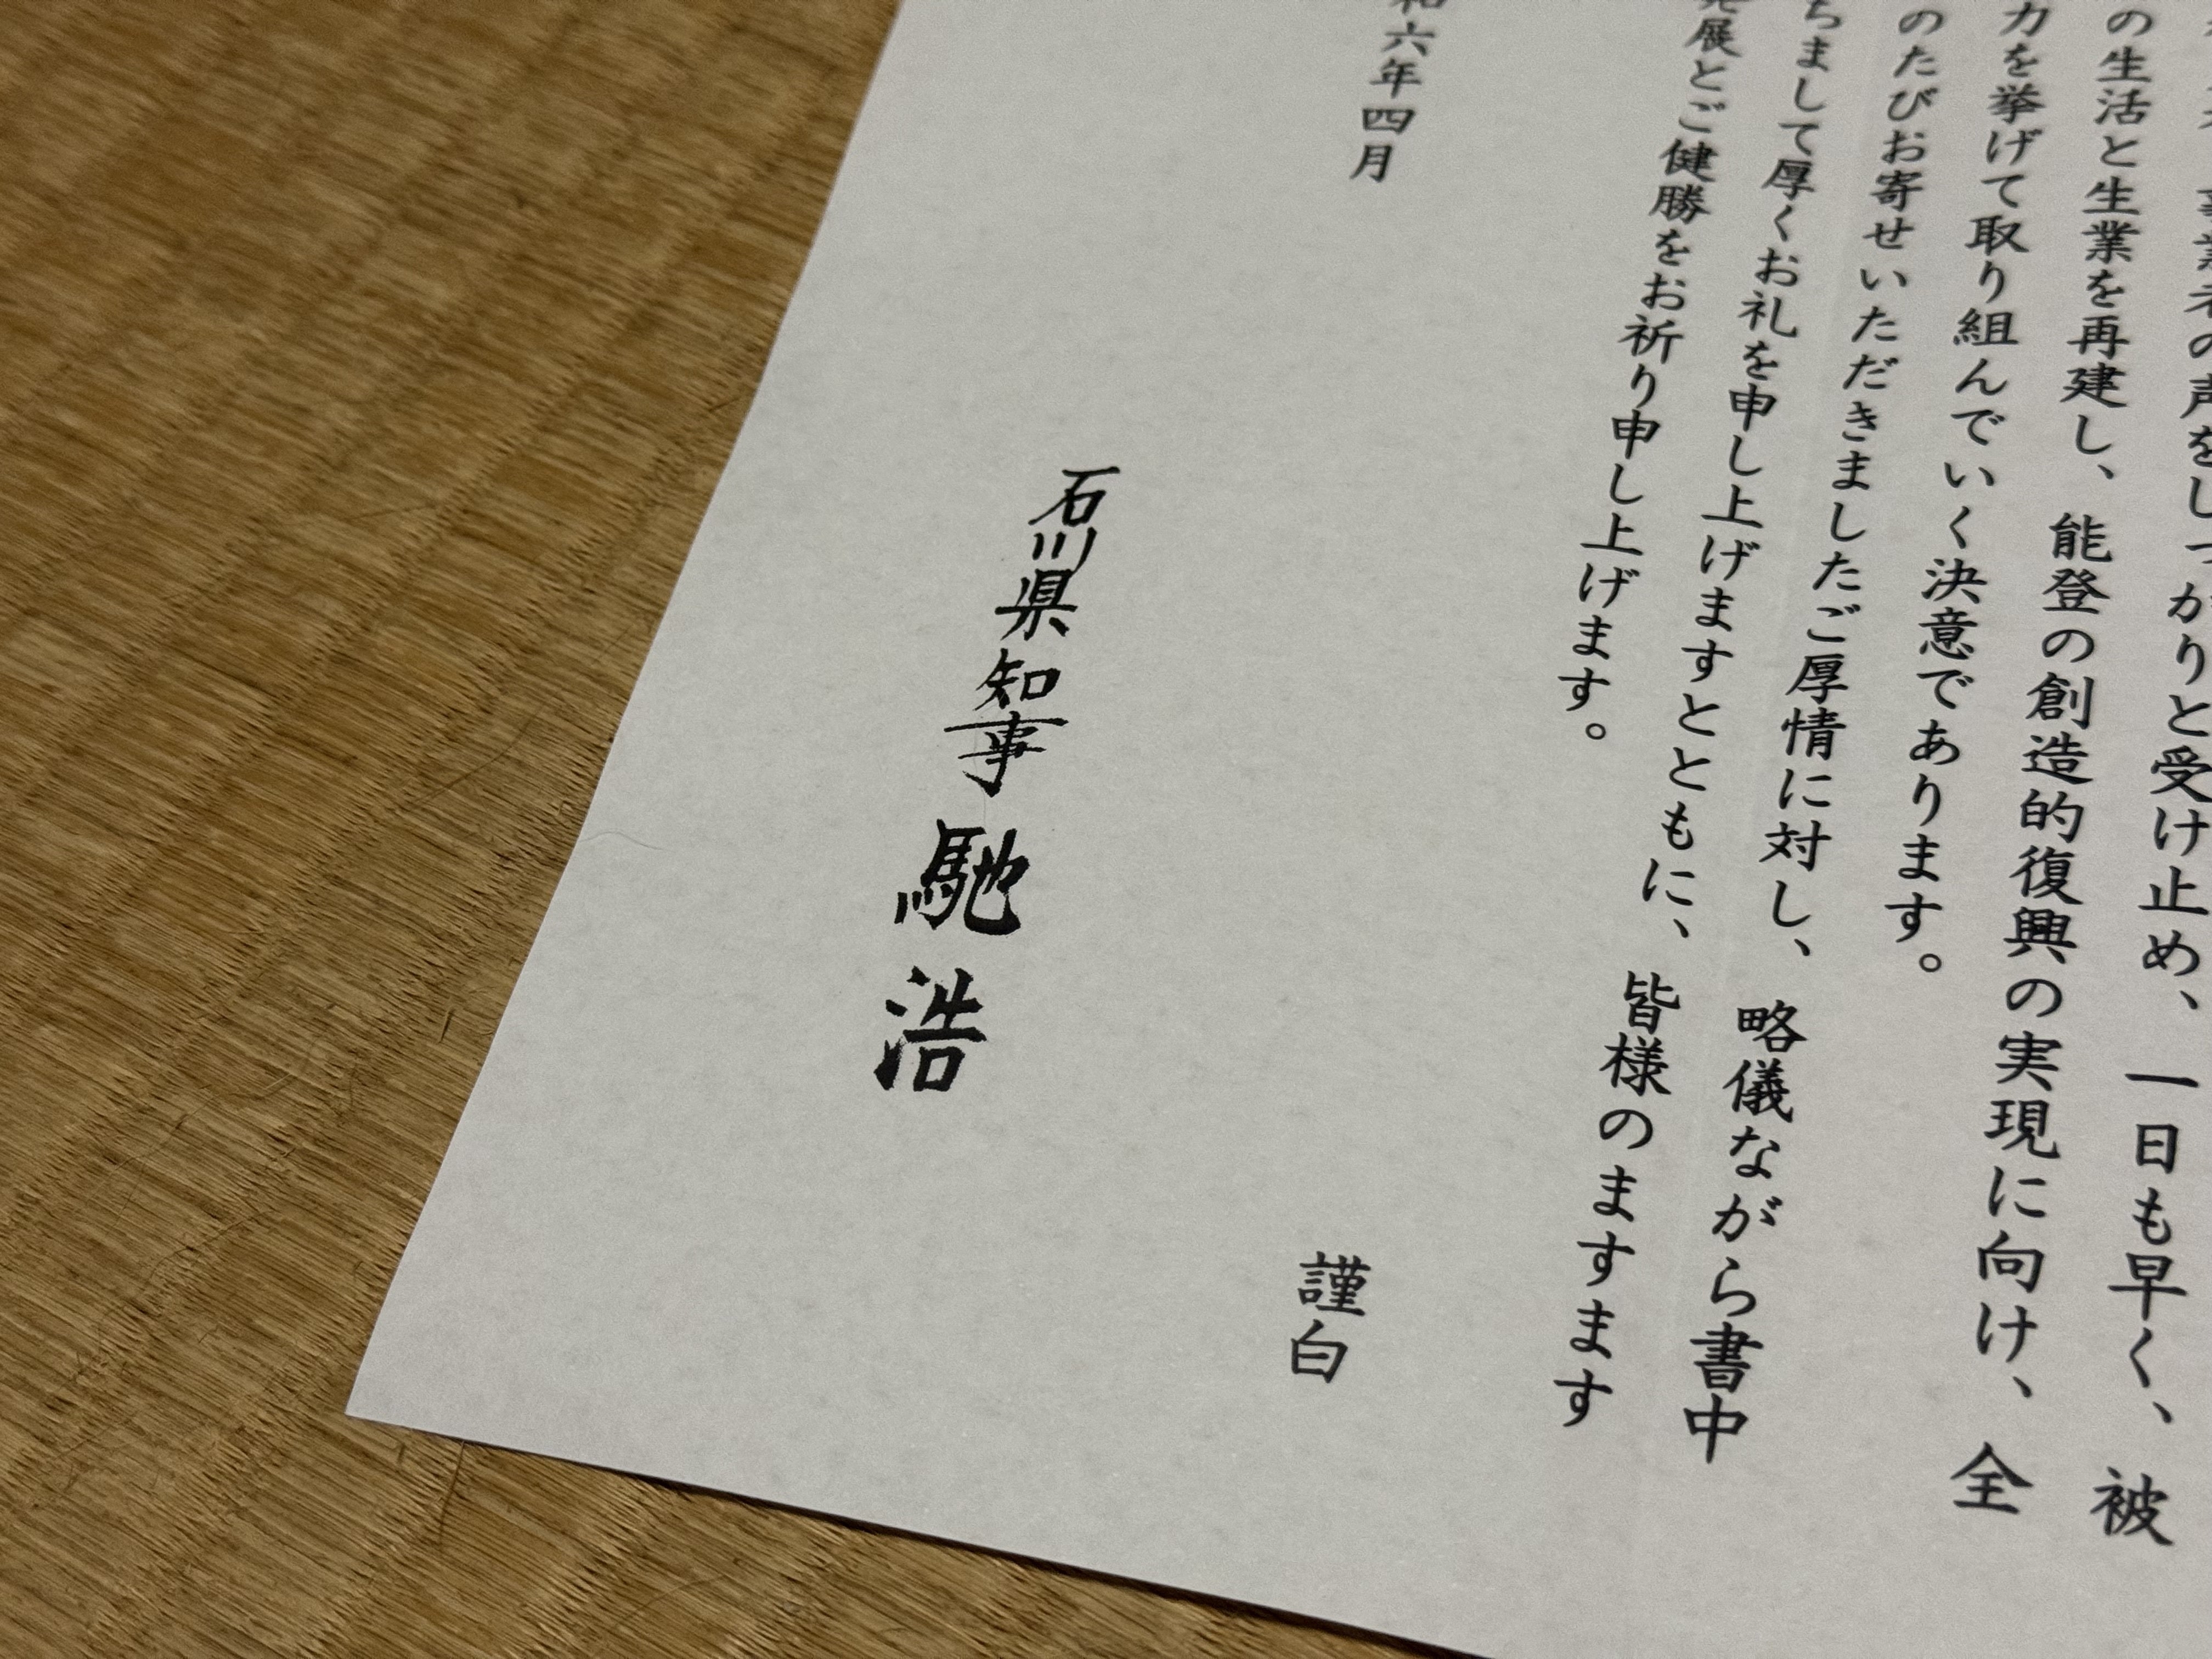 業者の声をしっかりと受け止め、一日も早く、被
の生活と生業を再建し、能登の創造的復興の実現に向け、全
力を挙げて取り組んでいく決意であります。
のたびお寄せいただきましたご厚情に対し、略儀ながら書中
ちまして厚くお礼を申し上げますとともに、皆様のますます
発展とご健勝をお祈り申し上げます。
謹白
和六年四月
石川県知事 馳浩